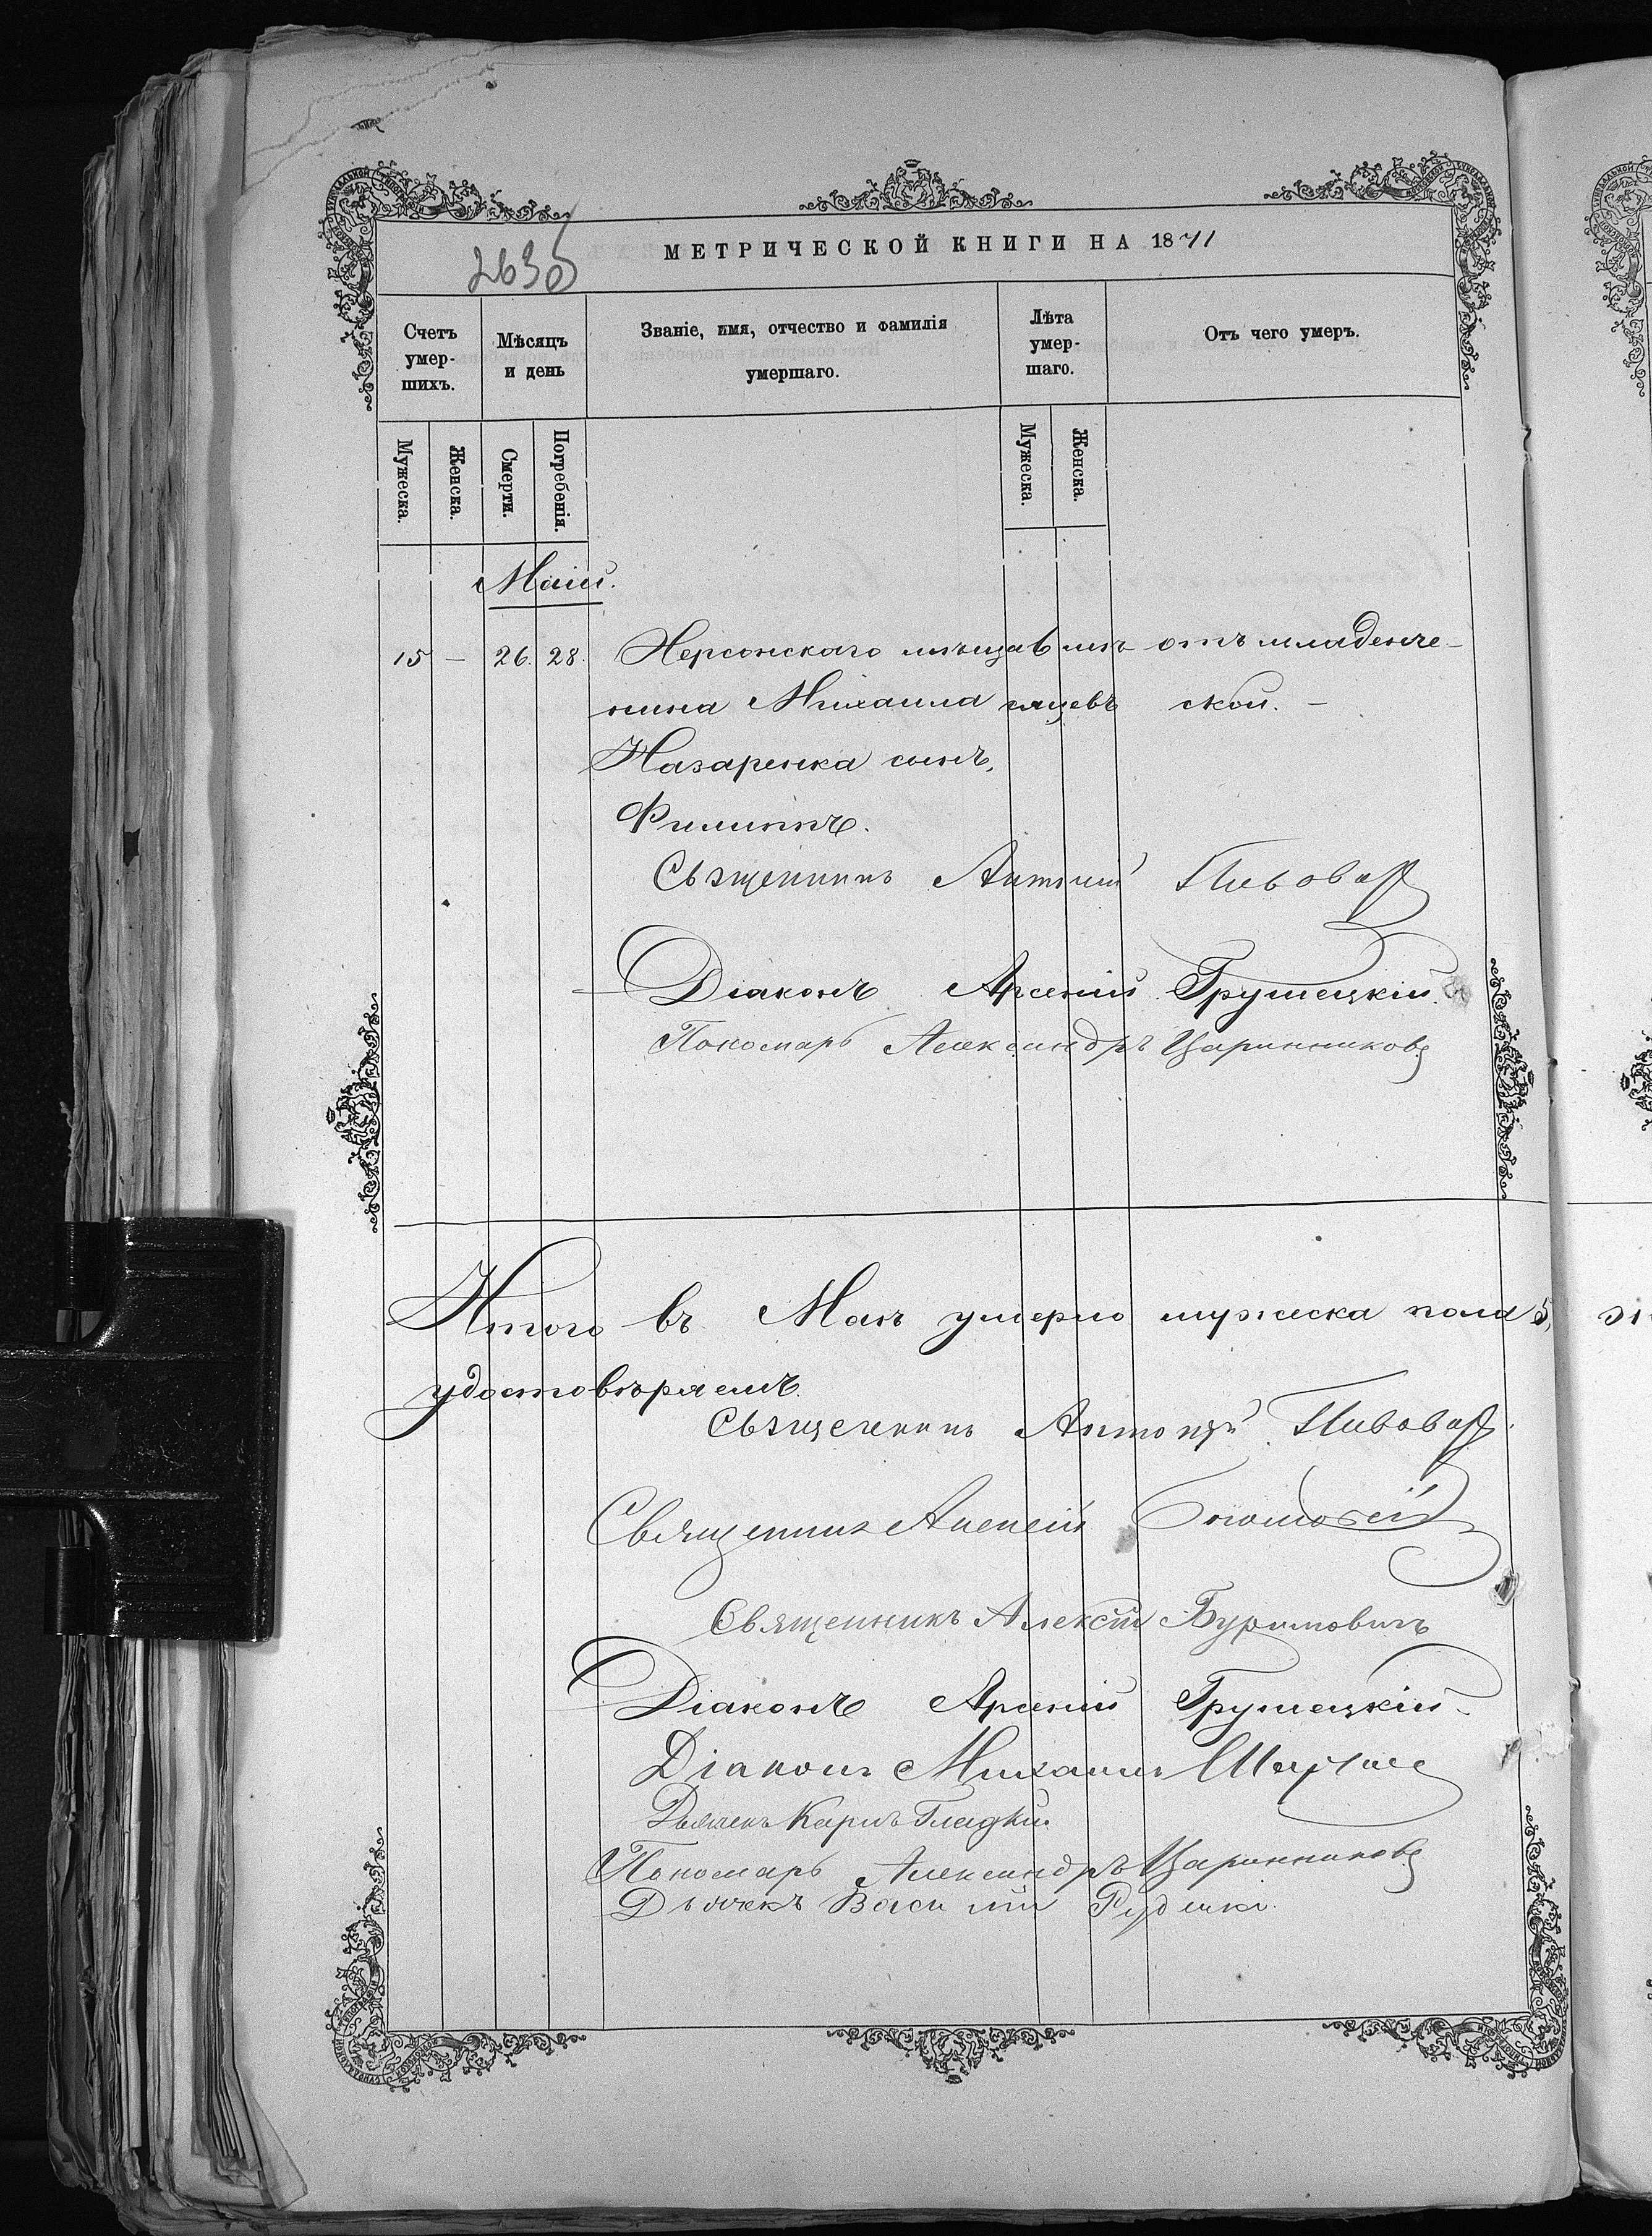 МЕТРИЧЕСКОЙ КНИГИ НА 1871
263об
Счетъ умер-шихъ.
Мѣсяцъ и день
Званіе, имя, отчество и фамилія умершаго.
Лѣта умер-шаго.
Отъ чего умеръ.
Мужеска. Женска. Смерти. Погребенія. Мужеска. Женска.
Маій.
15 – 26. 28. Херсонскаго мѣща 6 мѣ- отъ младенче-
нина Михаила сяцевъ ской. –
Назаренка сынъ,
Филиппъ.
Священникъ Антоній Пивовар
Діаконъ Арсеній Грушецкій.
Пономарь Александръ Царинниковъ
Итого въ Маѣ умерло мужеска пола 5,
удостовѣряемъ
Священникъ Антоній Пивовар
Священникъ Алексій
Священникъ Алексій Буримовичъ
Діаконъ Арсеній Грушецкій.
Діаконъ Михаилъ
Дьячекъ Карпъ Гладкій
Пономарь Александръ Царинниковъ
Дьячекъ Василій